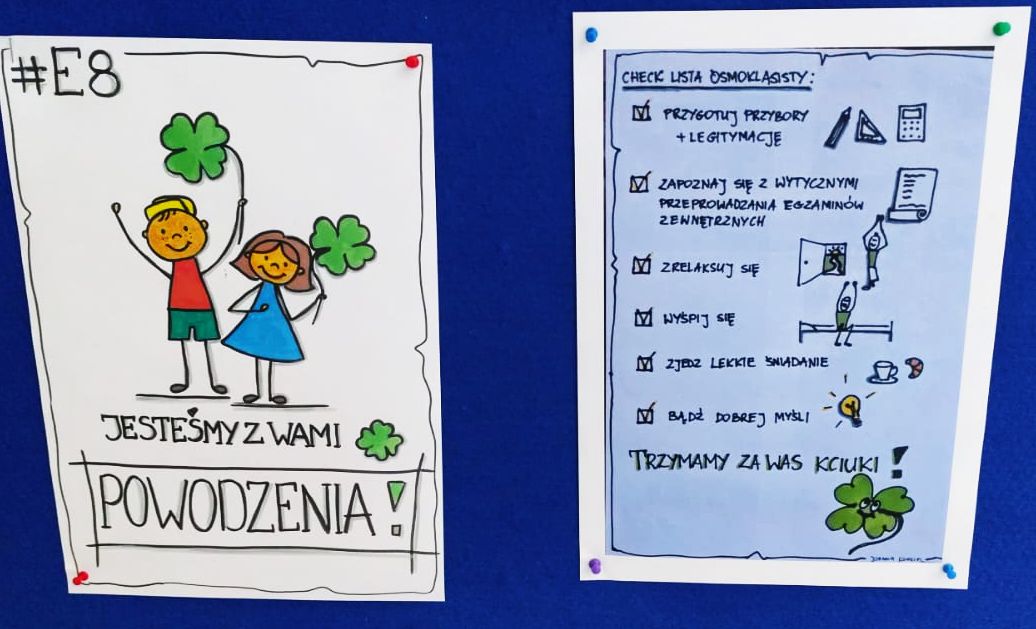 #E8
JESTEŚMY Z WAMI
POWODZENIA!
CHECK LISTA ÓSMOKLASISTY:
PRZYGOTUJ PRZYBORY
+ LEGITYMACJĘ
ZAPOZNAJ SIĘ Z WYTYCZNYMI
PRZEPROWADZANIA EGZAMINÓW
ZEWNĘTRZNYCH
ZRELAKSUJ SIĘ
WYŚPIJ SIĘ
ZJEDZ LEKKIE ŚNIADANIE
BĄDŹ DOBREJ MYŚLI
TRZYMAMY ZA WAS KCIUKI!